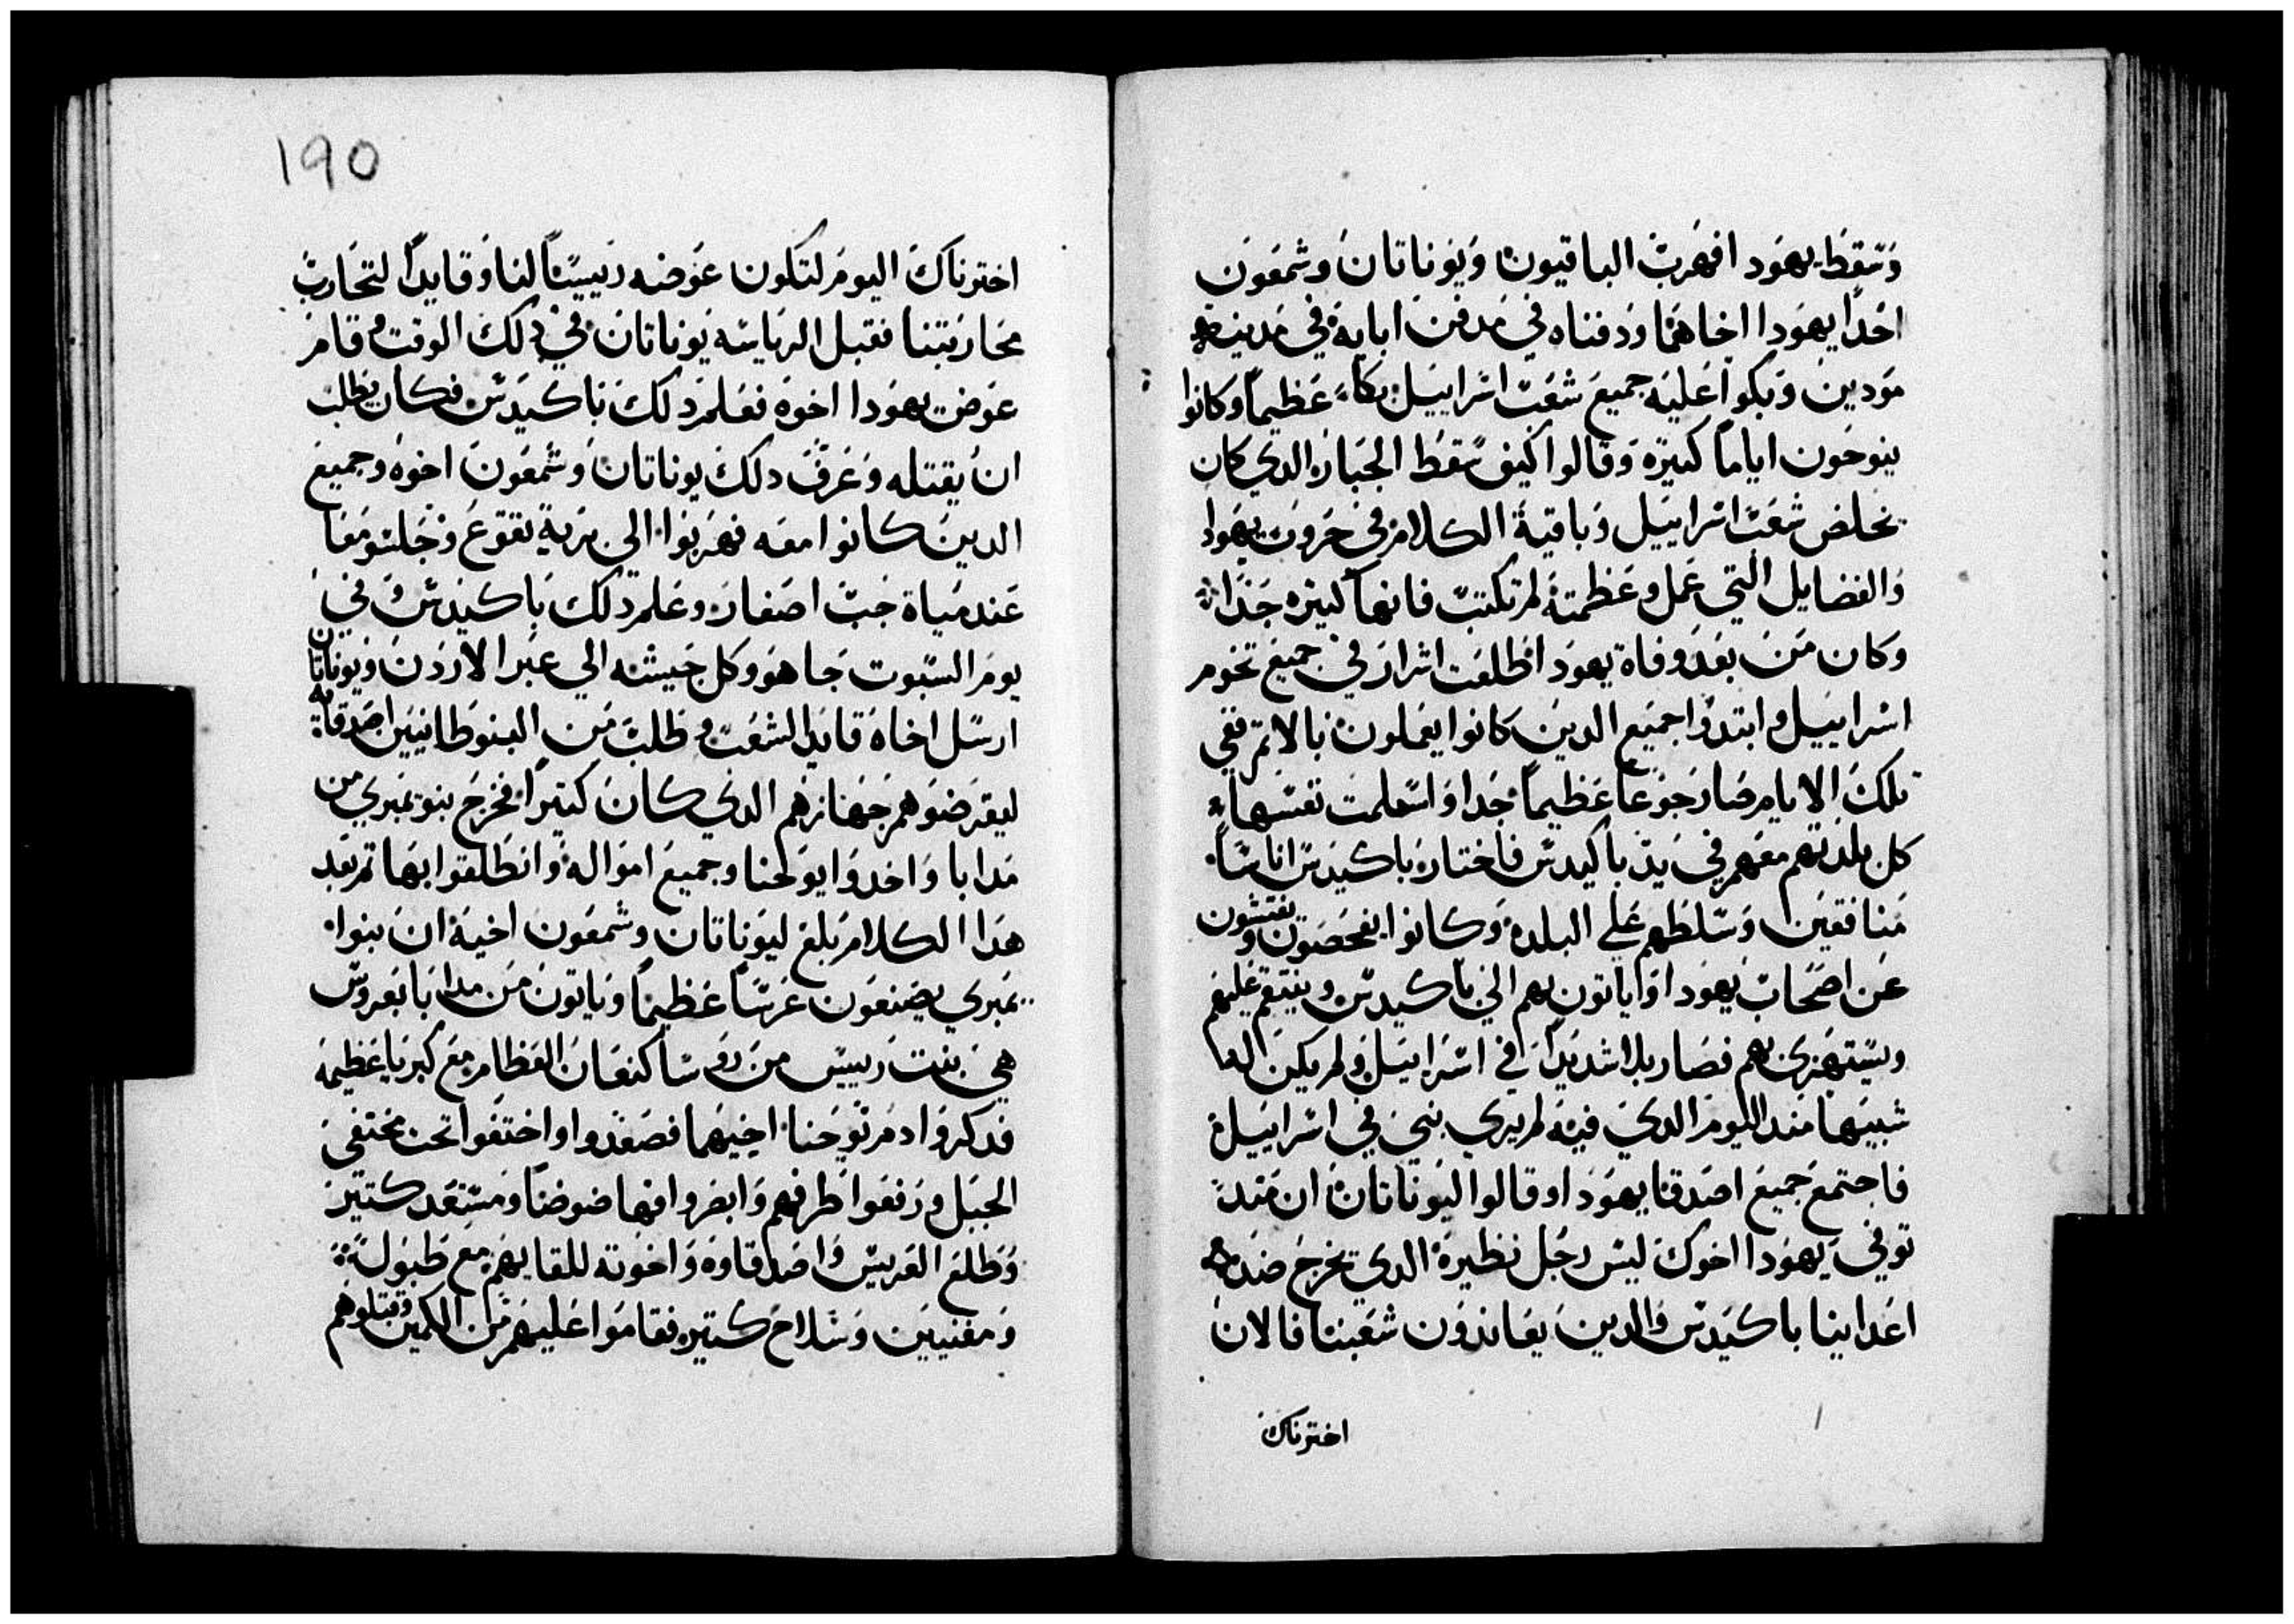 وسقط يهودا فهرب الباقيون ويوناتان وشمعون
اخدا يهودا اخاهما ودفناه في مدفن ابايه في مدينة
مودين وبكوا عليه جميع شعب اسراييل بكاء عظيماً وكانوا
ينوحون اياماً كتيره وقالوا كيف سقط الجبار الدي كان
يخلص شعب اسراييل وباقية الكلام في حروب يهودا
والفضايل التي عمل وعظمته لم تكتب فانها كتيره جداً
وكان من بعد وفاة يهودا طلعت اشرار في جميع تخوم
اسراييل وابتدوا جميع الدين كانوا يعملون بالاتم ففي
تلك الايام صار جوعاً عظيماً جدا واستملت نفسها
كل بلدتهم معهم في يد باكيدس فاختار باكيدس اناساً
منافقين وسلطهم علي البلده وكانوا يفحصون ويفتشون
عن اصحاب يهودا وياتون بهم الي باكيدس وينتقم عليهم
ويستهزي بهم فصار بلا شديداً في اسراييل ولم يكن لها
شبيهاً مند اليوم الدي فيه لم يري نبي في اسراييل
فاجتمع جميع اصدقا يهودا وقالوا ليوناتان ان مند
توفي يهودا اخوك ليس رجل نظيره الدي يخرج ضد
اعداينا باكيدس والدين يعاندون شعبنا فالان
اخترناك
١٩٥
اخترناك اليوم لتكون عوضه رييساً لنا وقايداً لتحارب
محاربتنا فقبل الرياسه يوناتان في دلك الوقت وقام
عوض يهودا اخوه فعلم دلك باكيدس فكان يطلب
ان يقتله وعرف دلك يوناتان وشمعون اخوه وجميع
الدين كانوا معه فهربوا الي برية تقوع وجلسو معا
عند مياة جب اصفار وعلم دلك باكيدس وفي
يوم السبوت جا هو وكل جيشه الي عبر الاردن ويوناتان
ارسل اخاه قايد الشعب وطلب من البنوطانيين اصدقايه
ليقرضوهم جهازهم الدي كان كتيراً فخرج بنو يمبري من
مدابا واخدوا يوحنا وجميع امواله وانطلقوا بها تم بعد
هدا الكلام بلغ ليوناتان وشمعون اخيه ان بنوا
يمبري يصنعون عرساً عظيماً وياتون من مدابا بعروس
هي بنت رييس من روسا كنعان العظام مع كبريا عظيمه
فدكروا دم يوحنا اخيهما فصعدوا واختفوا تحت مختفي
الجبل ورفعوا طرفهم وابصروا فها ضوضاً ومستعد كتير
وطلع العريس واصدقاوه واخوته للقايهم مع طبول
ومغنيين وسلاح كتيره فقاموا عليهم من الكمين وقتلوهم